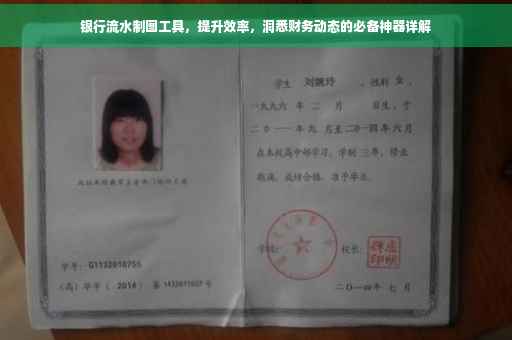 银行流水制图工具，提升效率，洞悉财务动态的必备神器详解
学生 刘婉玲 ，性别 女 ，
一九九六 年 二 月 日生，于
二〇一一年九 月至二〇一四年 六 月
在本校高中部学习，学制 三年，修业
期满，成绩合格，准予毕业。
学校：
校长：
二〇一四年 七 月
学号：G1132010755
（高）毕字（ 2014 ）第 1432011027 号